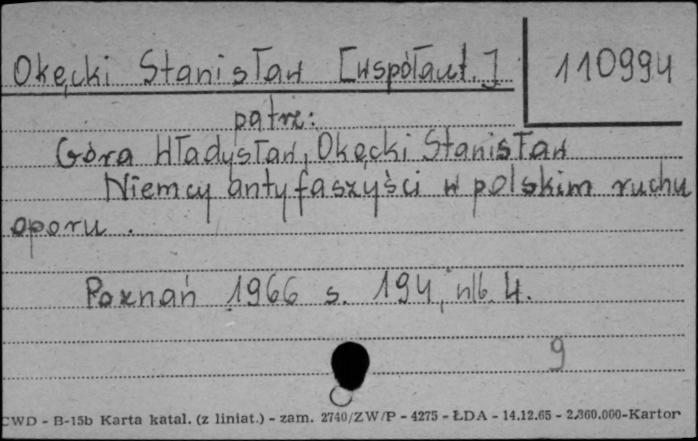 Okęcki Stanisław [współaut.] 110994
patrz:
Góra Władysław, Okęcki Stanisław
Niemcy antyfaszyści w polskim ruchu
oporu.
Poznań 1966 s. 194, nlb. 4.
9
CWD - B-15b Karta katal. (z liniat.) - zam. 2740/ZW/P - 4275 - ŁDA - 14.12.65 - 2.360.000-Karton